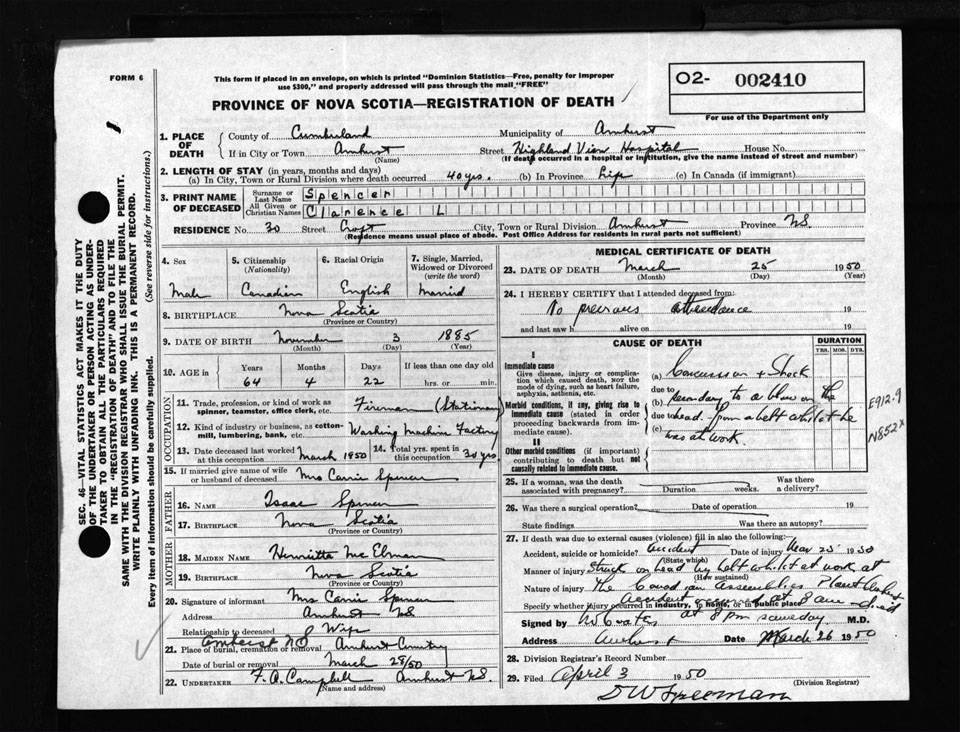 FORM 6
This form if placed in an envelope, on which is printed "Dominion Statistics—Free, penalty for improper
use $300," and properly addressed will pass through the mail "FREE"
O2- 002410
For use of the Department only
PROVINCE OF NOVA SCOTIA—REGISTRATION OF DEATH
1. PLACE OF DEATH
County of Cumberland Municipality of Amherst
If in City or Town Amherst Street Highland View Hospital House No.
(Name) (If death occurred in a hospital or institution, give the name instead of street and number)
2. LENGTH OF STAY (in years, months and days)
(a) In City, Town or Rural Division where death occurred 40 yrs. (b) In Province Life (c) In Canada (if immigrant)
3. PRINT NAME OF DECEASED
Surname or Last Name Spencer
All Given or Christian Names Clarence L
RESIDENCE No. 30 Street Croft City, Town or Rural Division Amherst Province N.S.
(Residence means usual place of abode. Post Office Address for residents in rural parts not sufficient)
4. Sex
Male
5. Citizenship (Nationality)
Canadian
6. Racial Origin
English
7. Single, Married, Widowed or Divorced (write the word)
Married
8. BIRTHPLACE Nova Scotia
(Province or Country)
9. DATE OF BIRTH November 3 1885
(Month) (Day) (Year)
10. AGE in Years Months Days If less than one day old
64 4 22 hrs. or min.
OCCUPATION
11. Trade, profession, or kind of work as spinner, teamster, office clerk, etc. Fireman (Stationary)
12. Kind of industry or business, as cotton-mill, lumbering, bank, etc. Washing Machine Factory
13. Date deceased last worked at this occupation March 1950
14. Total yrs. spent in this occupation 30 yrs.
15. If married give name of wife or husband of deceased Mrs Carrie Spencer
FATHER
16. NAME Isaac Spencer
17. BIRTHPLACE Nova Scotia
(Province or Country)
MOTHER
18. MAIDEN NAME Henrietta McElman
19. BIRTHPLACE Nova Scotia
(Province or Country)
20. Signature of informant Mrs Carrie Spencer
Address Amherst NS
Relationship to deceased Wife
Amherst NS
21. Place of burial, cremation or removal Amherst Cemetery
Date of burial or removal March 28/50
22. UNDERTAKER F. A. Campbell Amherst N.S.
(Name and address)
MEDICAL CERTIFICATE OF DEATH
23. DATE OF DEATH March 25 1950
(Month) (Day)
24. I HEREBY CERTIFY that I attended deceased from:
No previous attendance 19
and last saw h alive on 19
CAUSE OF DEATH
DURATION
YRS. MOS. DYS.
I
Immediate cause
Give disease, injury or complication which caused death, NOT the mode of dying, such as heart failure, asphyxia, asthenia, etc.
Morbid conditions, if any, giving rise to immediate cause (stated in order proceeding backwards from immediate cause).
II
Other morbid conditions (if important) contributing to death but not causally related to immediate cause.
(a) Concussion + Shock
due to
(b) secondary to a blow on the
due to head from a belt whilst he
(c) was at work.
E912.9
N852X
25. If a woman, was the death associated with pregnancy? Duration weeks. Was there a delivery?
26. Was there a surgical operation? Date of operation 19
State findings Was there an autopsy?
27. If death was due to external causes (violence) fill in also the following:
Accident, suicide or homicide? Accident Date of injury Mar 25 1950
(State which)
Manner of injury Struck on head by belt whilst at work at
(How sustained)
Nature of injury the Canadian Assemblies Plant Amherst
Accident occurred at 8 am - died
Specify whether injury occurred in industry, in home, or in public place
at 8 pm same day
Signed by M.D.
Address Amherst Date March 26 1950
28. Division Registrar's Record Number
29. Filed April 3 1950
D W Freeman
(Division Registrar)
SEC. 46—VITAL STATISTICS ACT MAKES IT THE DUTY
OF THE UNDERTAKER OR PERSON ACTING AS UNDER-
TAKER TO OBTAIN ALL THE PARTICULARS REQUIRED
IN THE "REGISTRATION OF DEATH" AND TO FILE THE
SAME WITH THE DIVISION REGISTRAR WHO SHALL ISSUE THE BURIAL PERMIT.
WRITE PLAINLY WITH UNFADING INK. THIS IS A PERMANENT RECORD.
Every item of information should be carefully supplied. (See reverse side for instructions.)